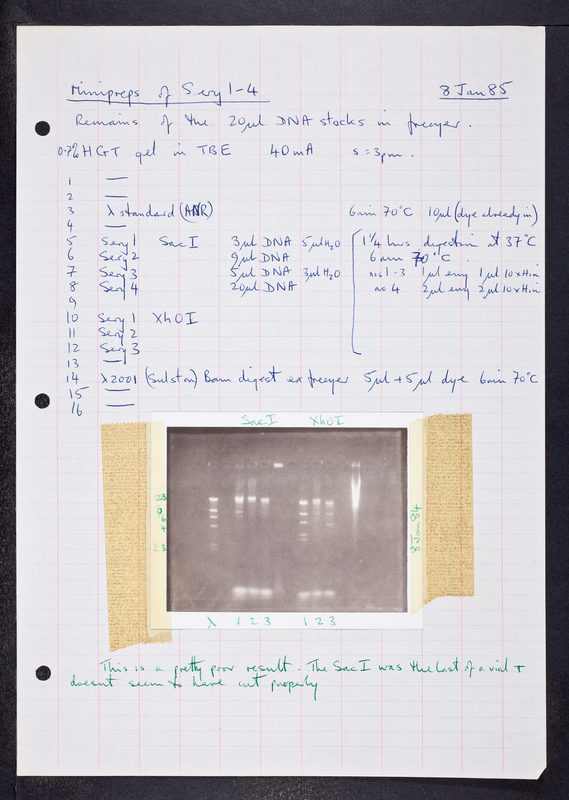 Minipreps of Sery 1-4 8 Jan 85
Remains of the 20µl DNA stocks in freezer.
0.7% HGT gel in TBE 40mA s = 3pm.
1 —
2 —
3 λ standard (ANR) 6min 70°C 10µl (dye already in)
4 —
5 Sery 1 SacI 3µl DNA 5µl H2O 1¼ hrs digestion at 37°C
6 Sery 2 9µl DNA 6min 70°C.
7 Sery 3 5µl DNA 3µl H2O nos 1-3 1µl enz 1µl 10xHin
8 Sery 4 20µl DNA no 4 2µl enz 2µl 10xHin
9
10 Sery 1 XhOI
11 Sery 2
12 Sery 3
13 —
14 λ2001 (Sulston) Bam digest ex freezer 5µl + 5µl dye 6min 70°C
15 —
16 —
SacI XhOI
23
9
6
4
2 3
8 Jan 84
λ 1 2 3 1 2 3
This is a pretty poor result. The SacI was the last of a vial +
doesnt seem to have cut properly